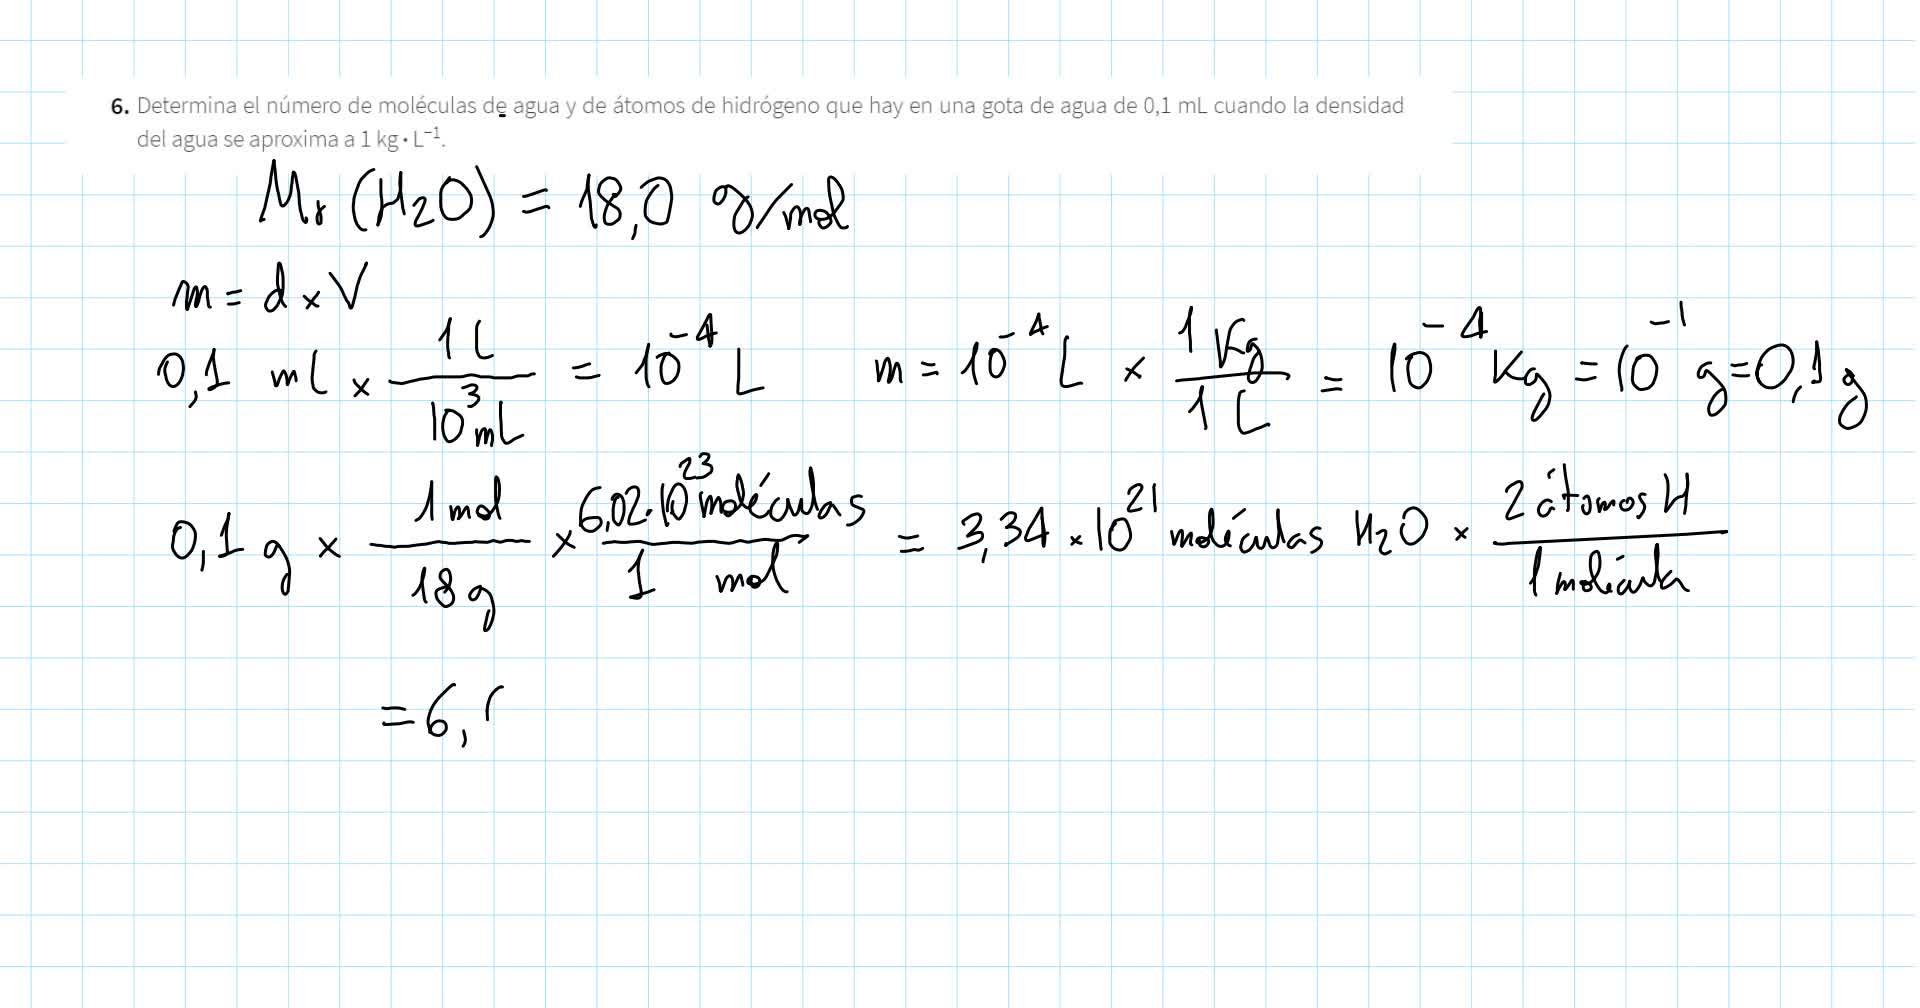 6. Determina el número de moléculas de agua y de átomos de hidrógeno que hay en una gota de agua de 0,1 mL cuando la densidad
del agua se aproxima a 1 kg · L⁻¹.
Mr (H₂O) = 18,0 g/mol
m = d × V
0,1 ml × 1 L / 10³ mL = 10⁻⁴ L m = 10⁻⁴ L × 1 Kg / 1 L = 10⁻⁴ Kg = 10⁻¹ g = 0,1 g
0,1 g × 1 mol / 18 g × 6,02·10²³ moléculas / 1 mol = 3,34 × 10²¹ moléculas H₂O × 2 átomos H / 1 molécula
= 6,